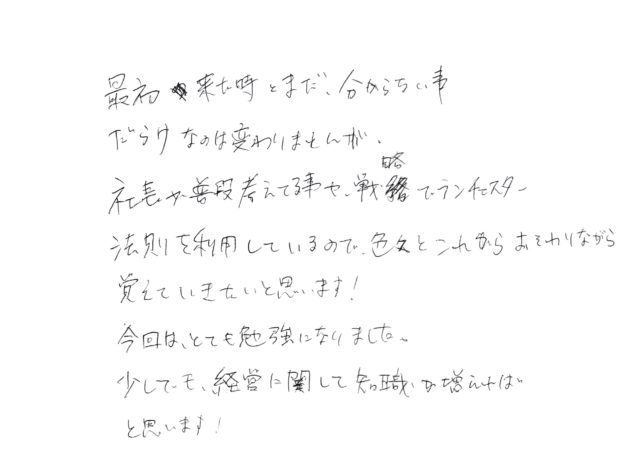 最初来た時とまだ、分からない事
だらけなのは変わりませんが、
社長が普段考えてる事や、戦略でランチェスター
法則を利用しているので、色々とこれからおそわりながら
覚えていきたいと思います!
今回は、とても勉強になりました。
少しでも、経営に関して知識が増えれば
と思います!